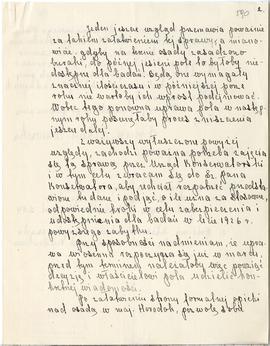 2.
Jeden jeszcze wzgląd przemawia poważnie
za takiem załatwieniem tej sprawy, a miano-
wicie, gdyby na terenie osady zasadzono
buraki, to późnej jesieni pole to byłoby nie-
dostępne dla badań. Będą one wymagały
znacznej ilości czasu i w późniejszej porze
roku nie warto by ich wprost podejmować.
Wobec tego ponowna uprawa pola w następ-
nym roku pozwoliłaby proces zniszczenia
jeszcze dalej.
Zważywszy wyłuszczone powyżej
względy, zachodzi poważna potrzeba zajęcia
się tą sprawą przez Urząd Konserwatorski
i w tym celu zwracam się do Sz. Pana
Konserwatora, aby zechciał rozpatrzyć przedsta-
wione tu dane i podjąć, o ile uzna za stosowne,
odpowiednie kroki w celu zabezpieczenia i
udostępnienia dla badań w lecie 1926 r.
powyższego zabytku.
Przy sposobności nadmieniam, że upra-
wa wiosenna rozpoczyna się już w marcu,
przed tym terminem należałoby więc powziąć
decyzję i właścicielowi pola udzielić kon-
kretnej wiadomości.
Po załatwieniu strony formalnej opieki
nad osadą w maj. Horodok, pozwolę sobie